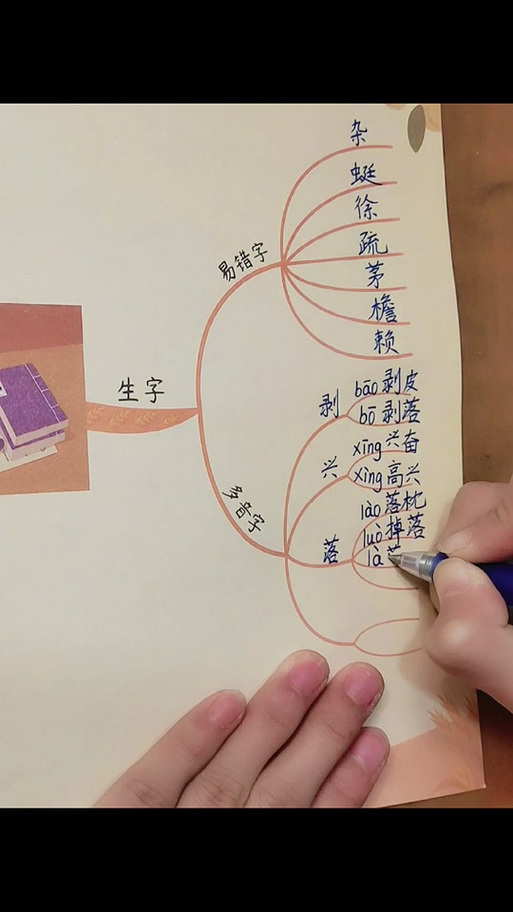 生字
易错字
杂
蜓
徐
疏
茅
檐
赖
多音字
剥
bāo 剥皮
bō 剥落
兴
xīng 兴奋
xìng 高兴
落
lào 落枕
luò 掉落
là